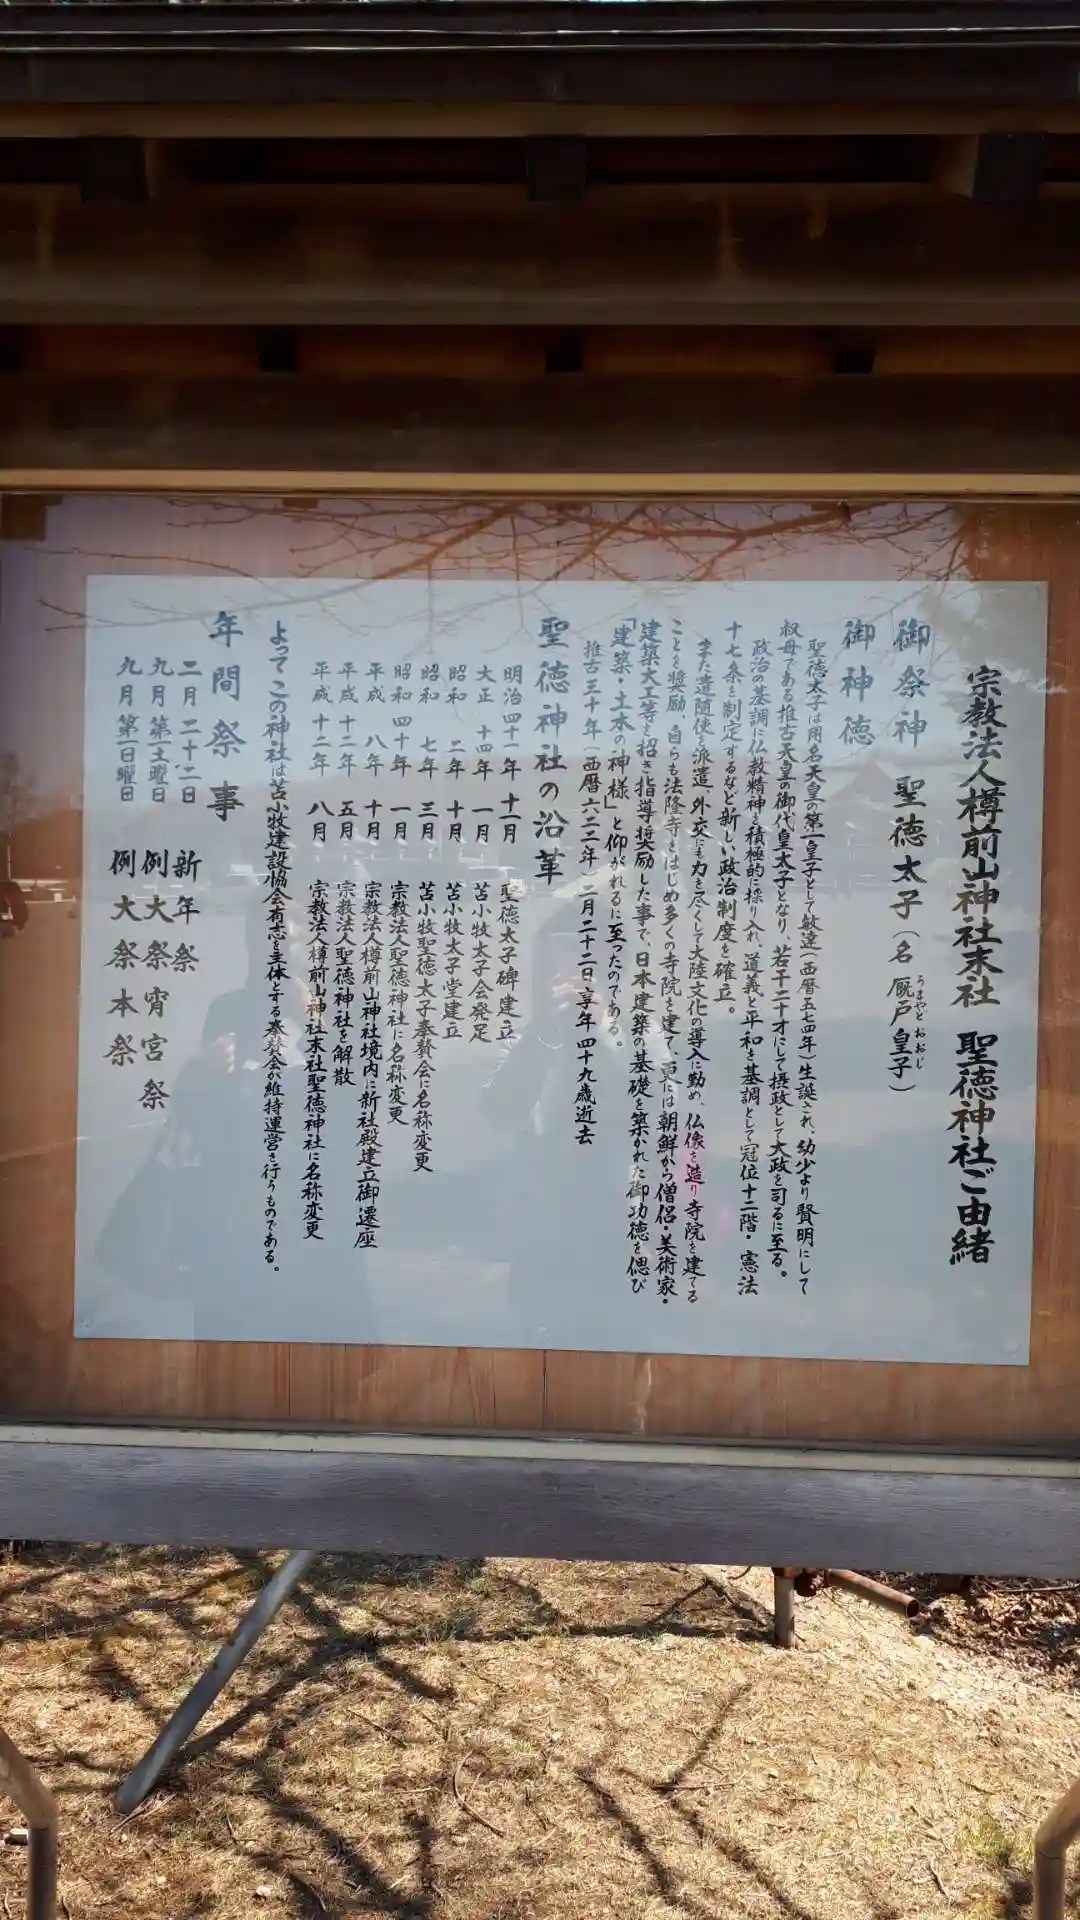 宗教法人樽前山神社末社 聖徳神社ご由緒
御祭神 聖徳太子（名 厩戸皇子）
うまやど おおじ
御神徳
聖徳太子は用名天皇の第一皇子として敏達（西暦五七四年）生誕され、幼少より賢明にして
叔母である推古天皇の御代皇太子となり、若干二十才にして摂政として大政を司るに至る。
政治の基調に仏教精神を積極的に採り入れ、道義と平和を基調として冠位十二階・憲法
十七条を制定するなど新しい政治制度を確立。
また遣随使を派遣、外交にも力を尽くして大陸文化の導入に勤め、仏像を造り寺院を建てる
ことを奨励、自らも法隆寺をはじめ多くの寺院を建て、更には朝鮮から僧侶・美術家・
建築大工等を招き指導奨励した事で、日本建築の基礎を築かれた御功徳を偲び
「建築・土木の神様」と仰がれるに至ったのである。
推古三十年（西暦六二二年）二月二十二日享年四十九歳逝去
聖徳神社の沿革
明治四十一年 十一月 聖徳太子碑建立
大正 十四年 一月 苫小牧太子会発足
昭和 二年 十月 苫小牧太子堂建立
昭和 七年 三月 苫小牧聖徳太子奉賛会に名称変更
昭和四十年 一月 宗教法人聖徳神社に名称変更
平成 八年 十月 宗教法人樽前山神社境内に新社殿建立御遷座
平成十二年 五月 宗教法人聖徳神社を解散
平成十二年 八月 宗教法人樽前山神社末社聖徳神社に名称変更
よってこの神社は苫小牧建設協会有志を主体とする奉賛会が維持運営を行うものである。
年間祭事
二月二十二日 新年祭
九月第一土曜日 例大祭宵宮祭
九月第一日曜日 例大祭本祭